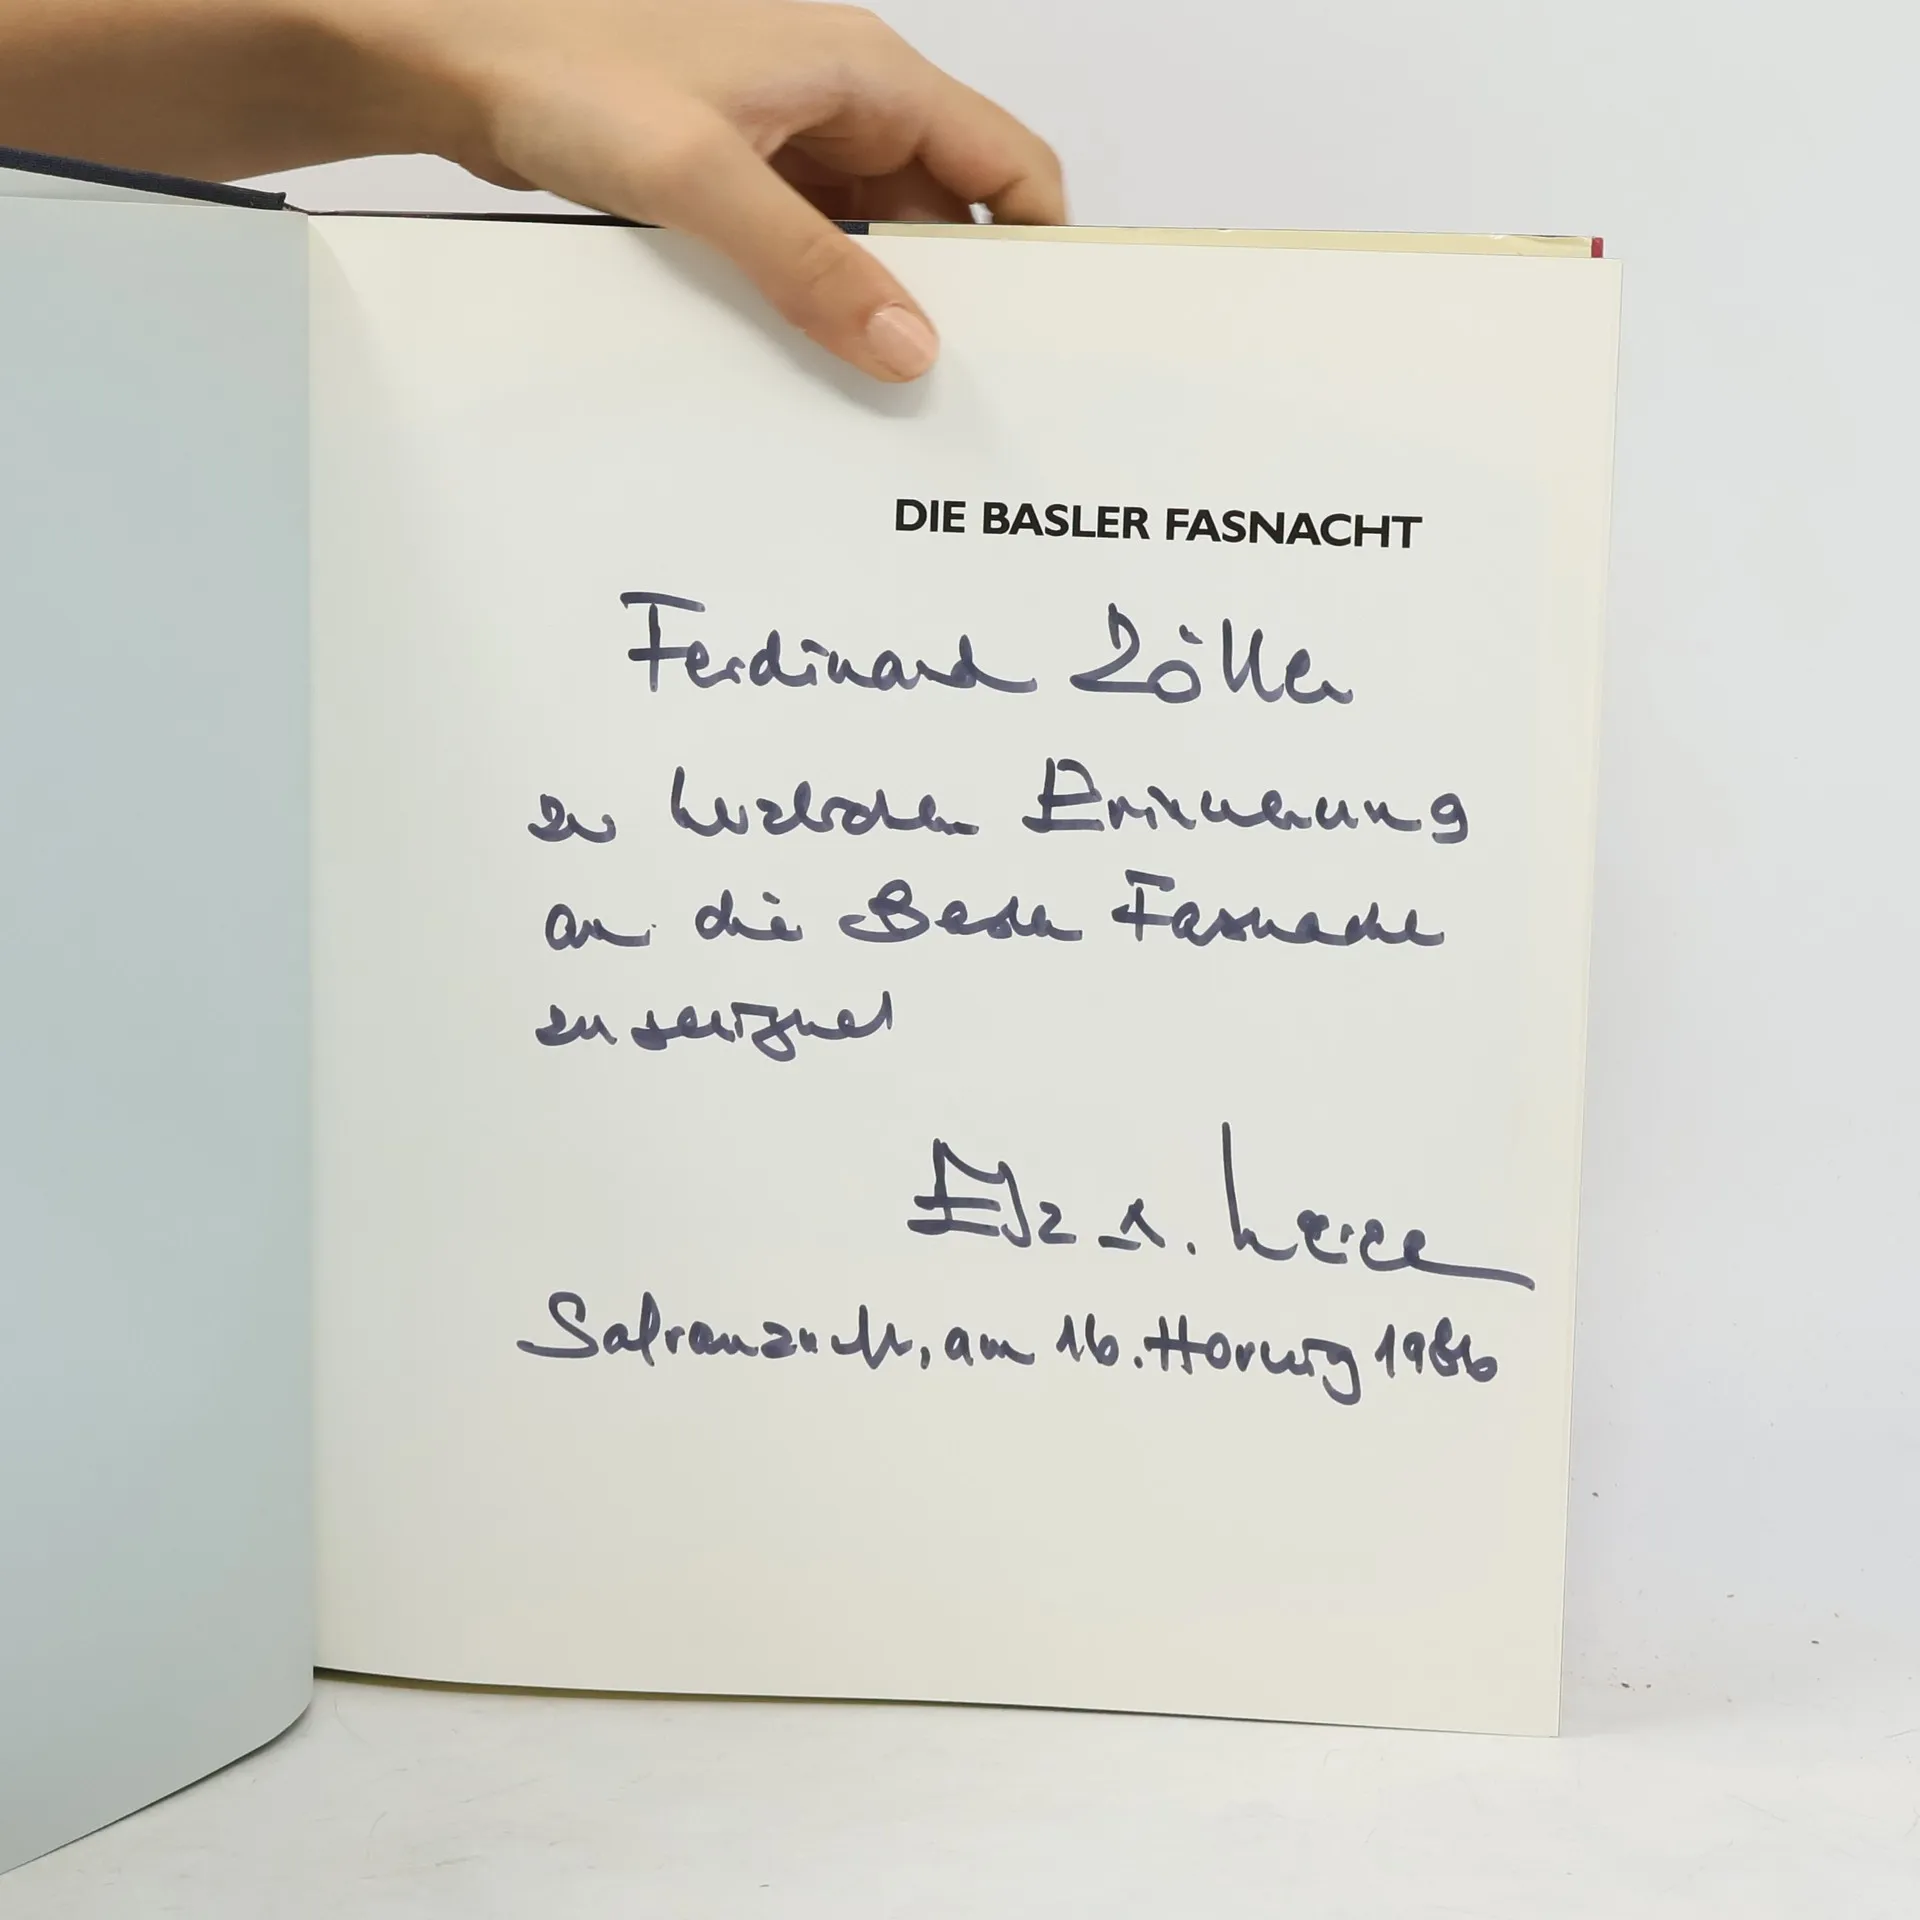 DIE BASLER FASNACHT
Ferdinand Zöller
zur herzlichen Erinnerung
an die Basler Fasnacht
zugeeignet
A. Meier
Safranzunft, am 16. Hornig 1986